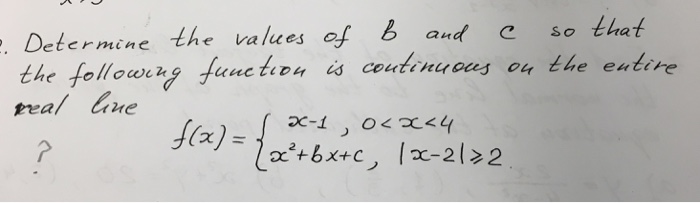 2. Determine the values of b and c so that
the following function is continuous on the entire
real line
f(x) = { x-1 , 0<x<4
? x²+bx+c, |x-2|⩾2.